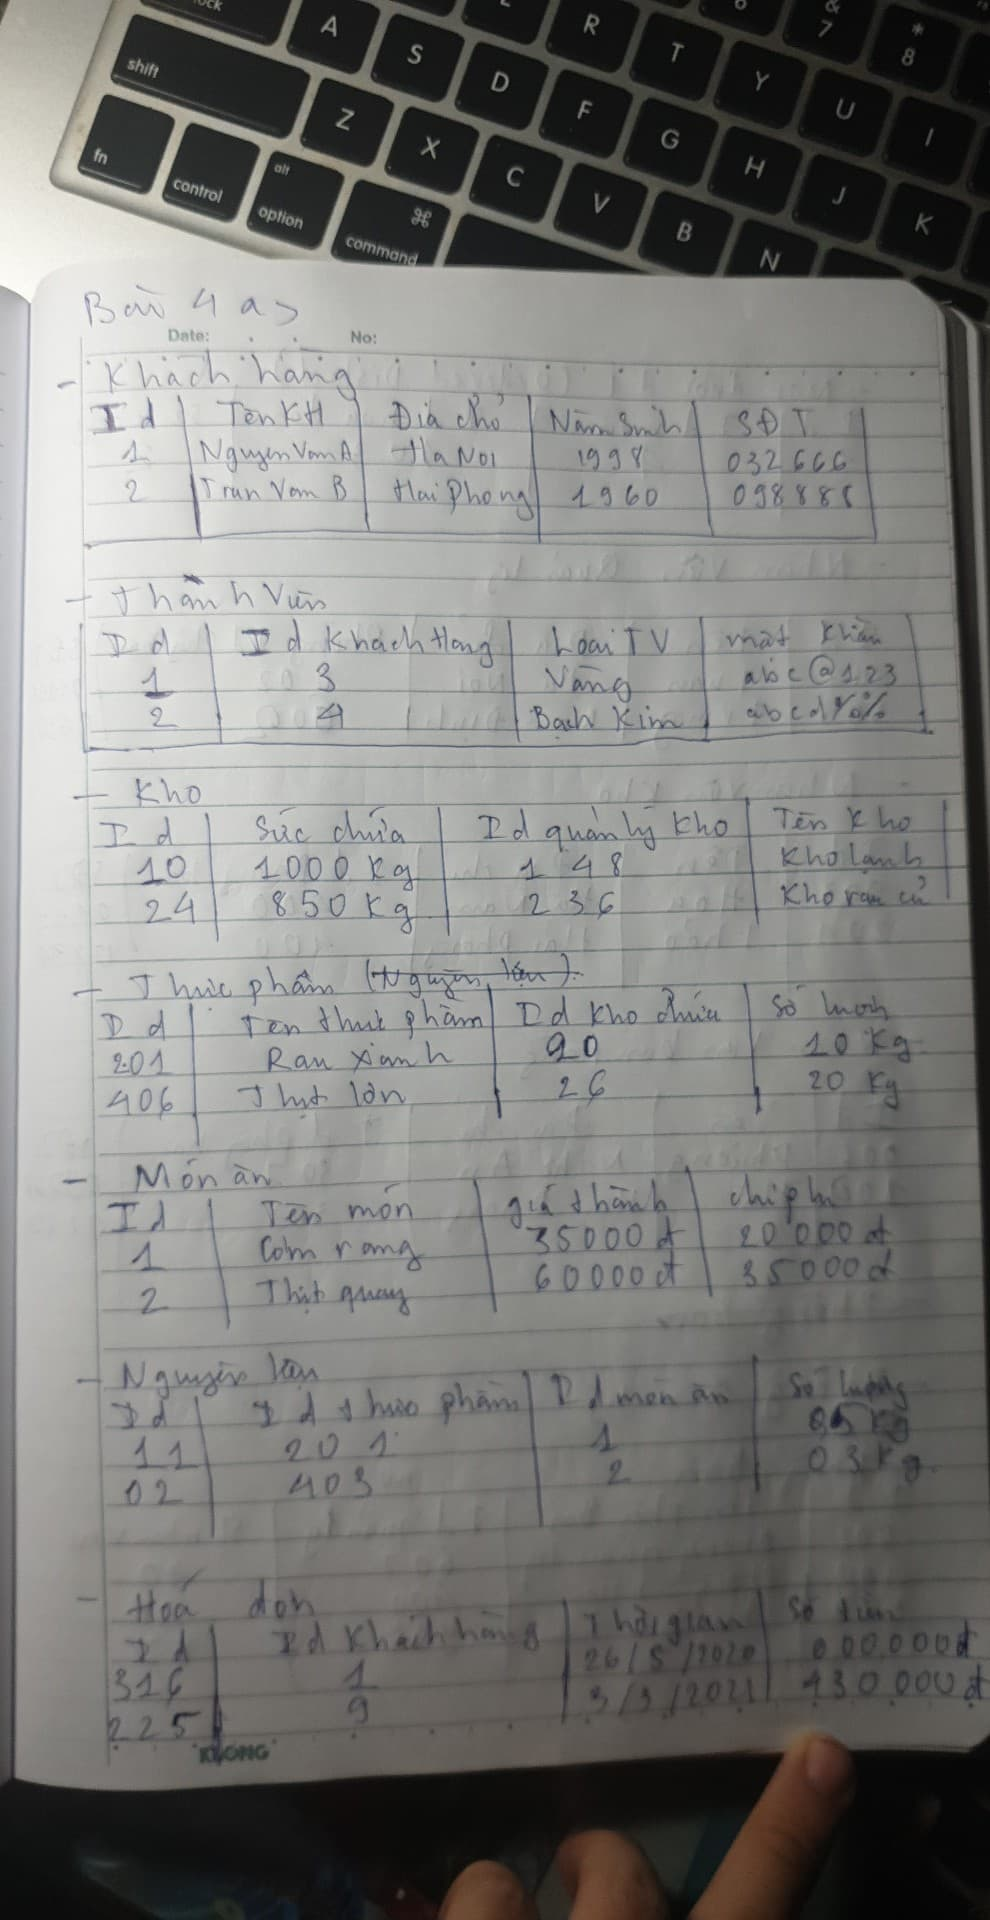 lock A R T & 7 * 8
shift S D F Y U I
fn Z X G H J K
control alt option C V B N
⌘ command
Bài 4 a>
Date: No:
- Khách hàng
Id Tên KH Địa chỉ Năm Sinh SĐT
1 Nguyen Van A Ha Noi 1998 032666
2 Tran Van B Hai Phong 1960 098888
- Thành Viên
Id Id Khach Hang Loại TV mật khẩu
1 3 Vàng abc@123
2 4 Bạch Kim abcd%%
- Kho
Id Sức chứa Id quản lý kho Tên Kho
10 1000 Kg 148 Kho lạnh
24 850 Kg 236 Kho rau củ
- Thực phẩm (Nguyên liệu)
Id Tên thực phẩm Id Kho chứa Số lượng
201 Rau xanh 20 10 Kg
406 Thịt lợn 26 20 Kg
- Món ăn
Id Tên món giá thành chi phí
1 Cơm rang 35000đ 20 000 đ
2 Thịt quay 60000đ 35000đ
- Nguyên liệu
Id Id thực phẩm Id món ăn Số lượng
11 201 1 kg
02 403 2 03 Kg
- Hoá đơn
Id Id Khách hàng Thời gian Số tiền
316 1 26/5/2020 000.000đ
225 9 3/3/2021 930.000đ
KLONG